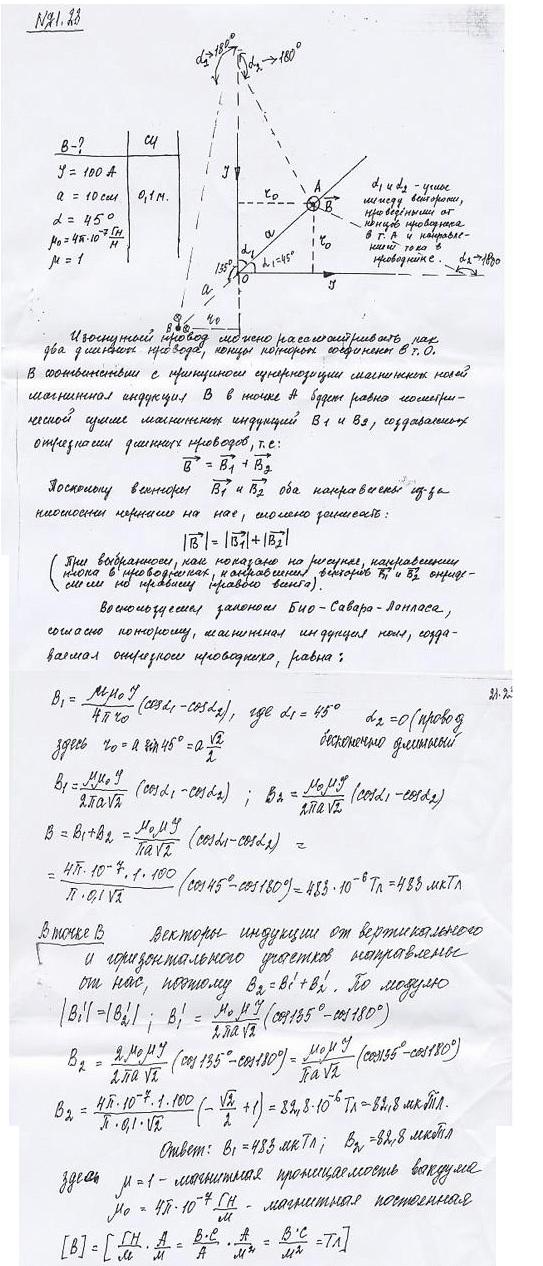 №21.23
α₁→180°
α₂→180°
B-?
СИ
I = 100 А
a = 10 см
0,1 м.
α = 45°
μ₀ = 4π·10⁻⁷ Гн/м
μ = 1
I
r₀
A
B
a
r₀
α₁
135°
α₁=45°
O
I
α₂→180°
a
B
r₀
α₁ и α₂ - углы
между векторами,
проведенными от
концов проводника
в т. А и направле-
нием тока в
проводнике.
Изогнутый провод можно рассматривать как
два длинных провода, концы которых соединены в т. О.
В соответствии с принципом суперпозиции магнитных полей
магнитная индукция B в точке А будет равна геометри-
ческой сумме магнитных индукций B1 и B2, создаваемых
отрезками длинных проводов, т.е:
B⃗ = B⃗₁ + B⃗₂
Поскольку векторы B⃗₁ и B⃗₂ оба направлены из-за
плоскости чертежа на нас, можно записать:
|B⃗| = |B⃗₁| + |B⃗₂|
(При выбранном, как показано на рисунке, направлении
тока в проводниках, направления векторов B⃗₁ и B⃗₂ опреде-
ляем по правилу правого винта).
Воспользуемся законом Био-Савара-Лапласа,
согласно которому, магнитная индукция поля, созда-
ваемая отрезком проводника, равна:
21.23
B₁ = μμ₀I/4πr₀ (cosα₁-cosα₂), где α₁ = 45° α₂ = 0 (провод
здесь r₀ = a sin45° = a √2/2 бесконечно длинный
B₁ = μμ₀I/2πa√2 (cosα₁-cosα₂) ; B₂ = μ₀μI/2πa√2 (cosα₁-cosα₂)
B = B₁+B₂ = μ₀μI/πa√2 (cosα₁-cosα₂) =
= 4π·10⁻⁷·1·100/π·0,1√2 (cos45°-cos180°) = 483·10⁻⁶ Тл = 483 мкТл
В точке B Векторы индукции от вертикального
и горизонтального участков направлены
от нас, поэтому B₂ = B₁' + B₂'. По модулю
|B₁'| = |B₂'| ; B₁' = μ₀μI/2πa√2 (cos135°-cos180°)
B₂ = 2μ₀μI/2πa√2 (cos135°-cos180°) = μ₀μI/πa√2 (cos135°-cos180°)
B₂ = 4π·10⁻⁷·1·100/π·0,1·√2 (-√2/2 + 1) = 82,8·10⁻⁶ Тл = 82,8 мкТл.
Ответ: B₁ = 483 мкТл; B₂ = 82,8 мкТл
здесь μ = 1 - магнитная проницаемость вакуума
μ₀ = 4π·10⁻⁷ Гн/м - магнитная постоянная
[B] = [Гн/м · А/м = В·С/А · А/м² = В·С/м² = Тл]